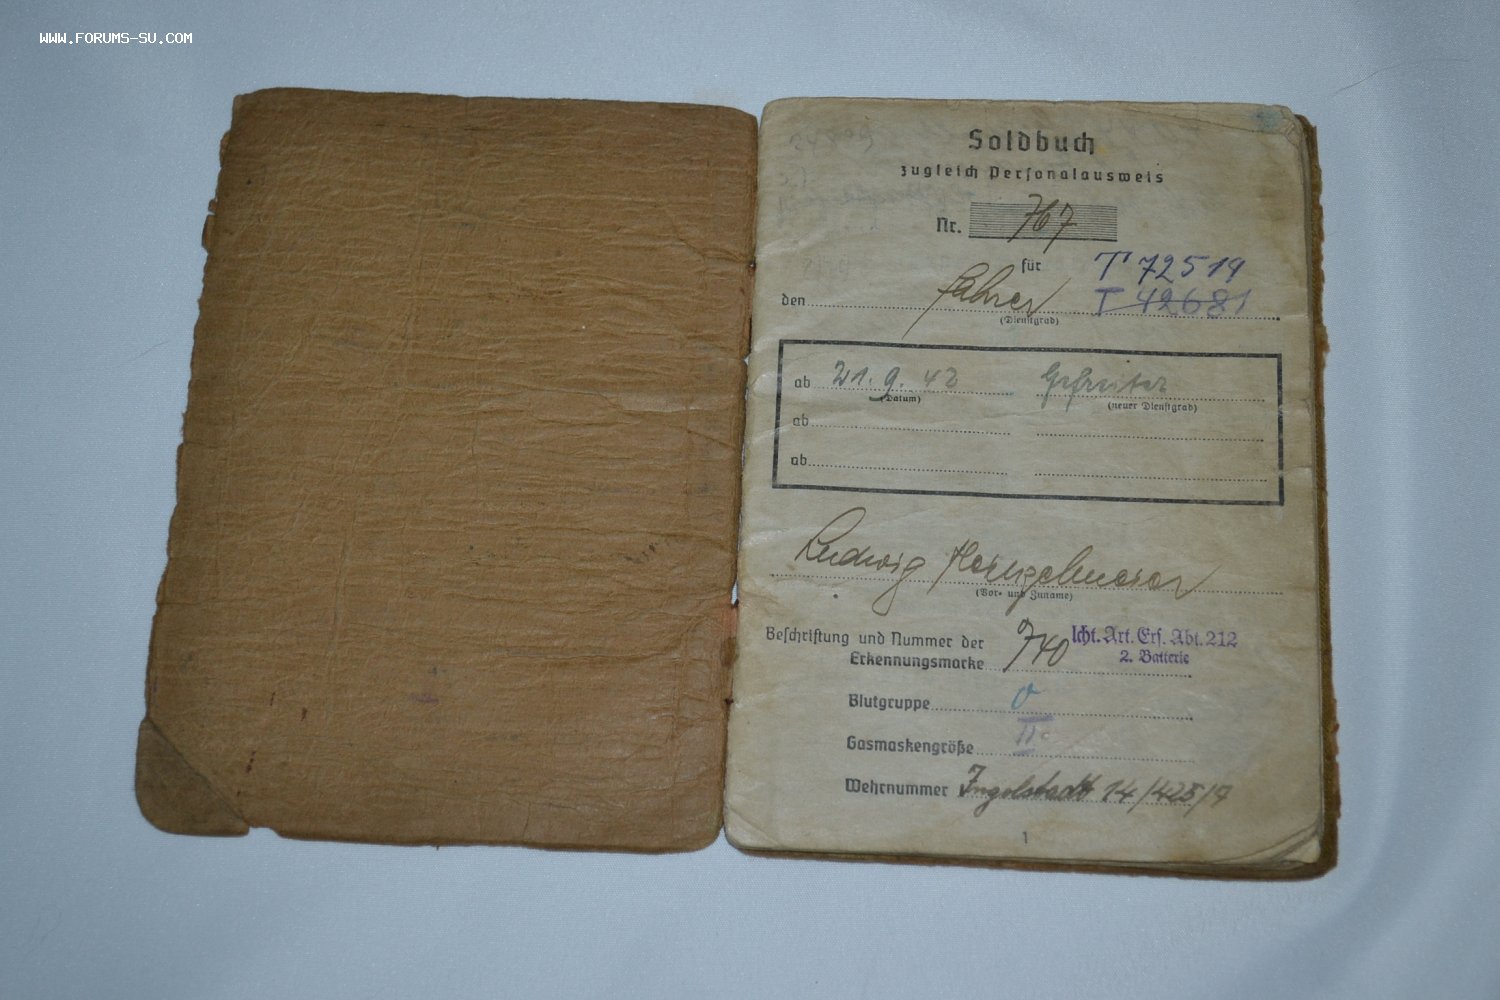 WWW.FORUMS-SU.COM
Soldbuch
zugleich Personalausweis
Nr. 767
für T 72519
den Fahrer T 42681
(Dienstgrad)
ab 21. 9. 42 Gefreiter
(Datum) (neuer Dienstgrad)
ab
ab
Ludwig
(Vor- und Zuname)
Beschriftung und Nummer der lcht. Art. Ers. Abt. 212
Erkennungsmarke 740 2. Batterie
Blutgruppe O
Gasmaskengröße II
Wehrnummer Ingolstadt 14/425/7
1